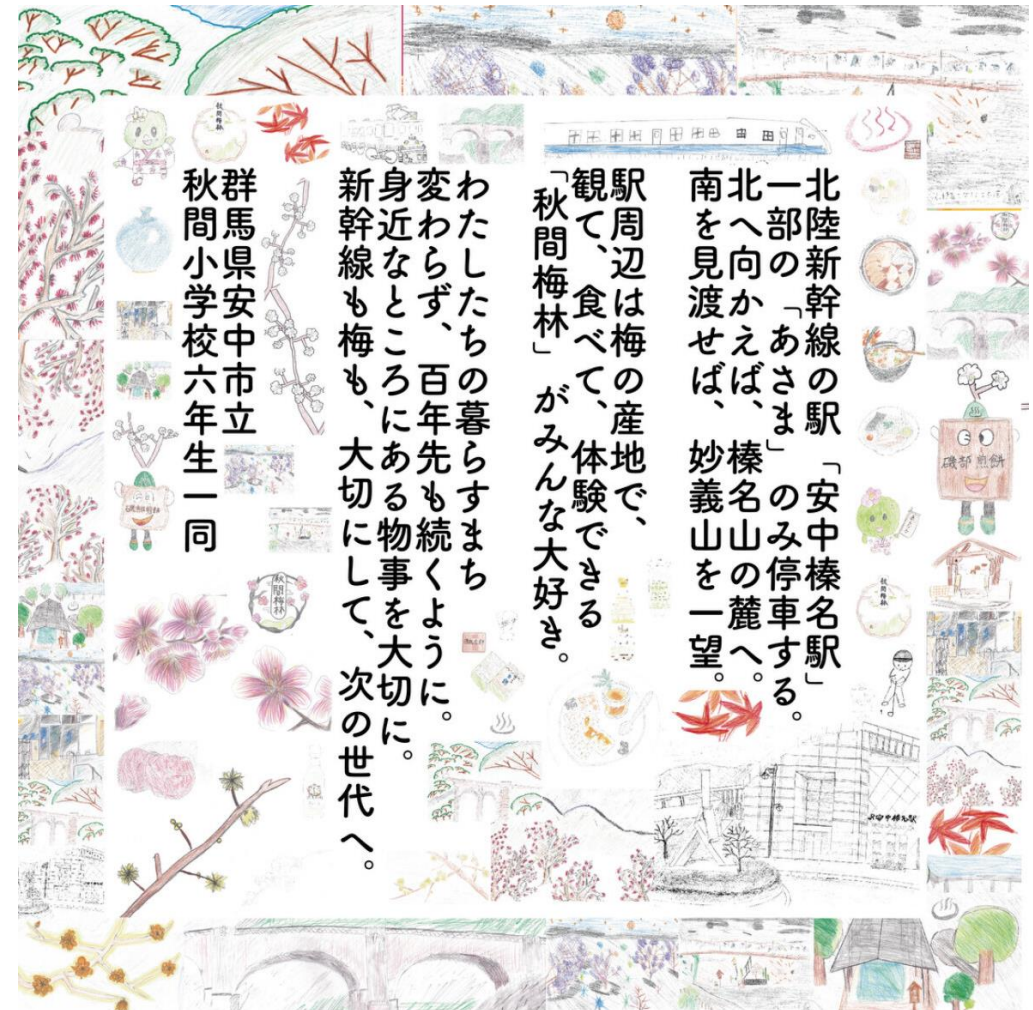 北陸新幹線の駅「安中榛名駅」
一部の「あさま」のみ停車する。
北へ向かえば、榛名山の麓へ。
南を見渡せば、妙義山を一望。
駅周辺は梅の産地で、
観て、食べて、体験できる
「秋間梅林」がみんな大好き。
わたしたちの暮らすまち
変わらず、百年先も続くように。
身近なところにある物事を大切に。
新幹線も梅も、大切にして、次の世代へ。
群馬県安中市立
秋間小学校六年生一同
秋間梅林
磯部煎餅
秋間梅林
秋間梅林
磯部煎餅
JR安中榛名駅